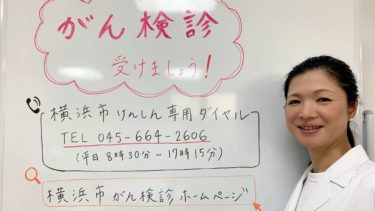 がん検診
受けましょう!
横浜市けんしん専用ダイヤル
TEL 045-664-2606
(平日8時30分〜17時15分)
横浜市がん検診ホームページ